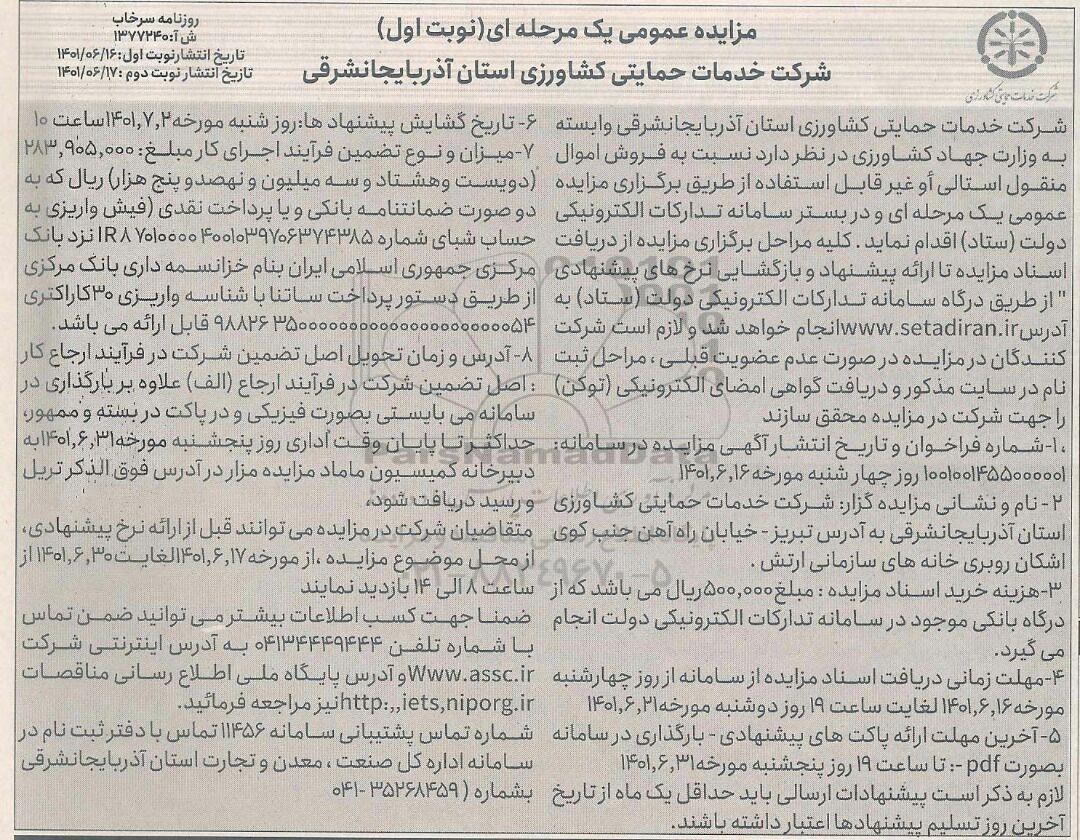 روزنامه سرخاب
ش آ: ۱۳۷۷۲۴۰
تاریخ انتشارنوبت اول:۱۴۰۱/۰۶/۱۶
تاریخ انتشار نوبت دوم :۱۴۰۱/۰۶/۱۷
مزایده عمومی یک مرحله ای(نوبت اول)
شرکت خدمات حمایتی کشاورزی استان آذربایجانشرقی
شرکت خدمات حمایتی کشاورزی
شرکت خدمات حمایتی کشاورزی استان آذربایجانشرقی وابسته
به وزارت جهاد کشاورزی در نظر دارد نسبت به فروش اموال
منقول استالی أو غیر قابل استفاده از طریق برگزاری مزایده
عمومی یک مرحله ای و در بستر سامانه تدارکات الکترونیکی
دولت (ستاد) اقدام نماید . کلیه مراحل برگزاری مزایده از دریافت
اسناد مزایده تا ارائه پیشنهاد و بازگشایی نرخ های پیشنهادی
" از طریق درگاه سامانه تدارکات الکترونیکی دولت (ستاد) به
آدرسwww.setadiran.irانجام خواهد شد و لازم است شرکت
کنندگان در مزایده در صورت عدم عضویت قبلی ، مراحل ثبت
نام در سایت مذکور و دریافت گواهی امضای الکترونیکی (توکن)
را جهت شرکت در مزایده محقق سازند
،۱-شماره فراخوان و تاریخ انتشار آگهی مزایده در سامانه:
۱۰۰۱۰۰۱۴۵۵۰۰۰۰۰۱ روز چهار شنبه مورخه ۱۴۰۱,۶,۱۶
۲- نام و نشانی مزایده گزار: شرکت خدمات حمایتی کشاورزی
استان آذربایجانشرقی به آدرس تبریز- خیابان راه آهن جنب کوی
اشکان روبری خانه های سازمانی ارتش .
۳-هزینه خرید اسناد مزایده : مبلغ ۵۰۰,۰۰۰ریال می باشد که از
درگاه بانکی موجود در سامانه تدارکات الکترونیکی دولت انجام
می گیرد.
۴-مهلت زمانی دریافت اسناد مزایده از سامانه از روز چهارشنبه
مورخه۱۴۰۱,۶,۱۶ لغایت ساعت ۱۹ روز دوشنبه مورخه۱۴۰۱,۶,۲۱
۵- آخرین مهلت ارائه پاکت های پیشنهادی - بارگذاری در سامانه
بصورت pdf -: تا ساعت ۱۹ روز پنجشنبه مورخه۱۴۰۱,۶,۳۱
لازم به ذکر است پیشنهادات ارسالی باید حداقل یک ماه از تاریخ
آخرین روز تسلیم پیشنهادها اعتبار داشته باشند.
۶- تاریخ گشایش پیشنهاد ها:روز شنبه مورخه۱۴۰۱,۷,۲ساعت ۱۰
۷-میزان و نوع تضمین فرآیند اجرای کار مبلغ: ۲۸۳,۹۰۵,۰۰۰
(دویست وهشتاد و سه میلیون و نهصدو پنج هزار) ریال که به
دو صورت ضمانتنامه بانکی و یا پرداخت نقدی (فیش واریزی به
حساب شبای شماره IR۸۷۰۱۰۰۰۰۴۰۰۱۰۳۹۷۰۶۳۷۴۳۸۵ نزد بانک
مرکزی جمهوری اسلامی ایران بنام خزانسمه داری بانک مرکزی
از طریق دستور پرداخت ساتنا با شناسه واریزی ۳۰کاراکتری
قابل ارائه می باشد.
۸- آدرس و زمان تحویل اصل تضمین شرکت در فرآیند ارجاع کار
: اصل تضمین شرکت در فرآیند ارجاع (الف) علاوه بر بارگذاری در
سامانه می بایستی بصورت فیزیکی و در پاکت در بسته و ممهور،
حداکثر تا پایان وقت اداری روز پنجشنبه مورخه۱۴۰۱,۶,۳۱به
دبیرخانه کمیسیون ماماد مزایده مزار در آدرس فوق الذکر تریل
و رسید دریافت شود،
متقاضیان شرکت در مزایده می توانند قبل از ارائه نرخ پیشنهادی،
از محل موضوع مزایده ،از مورخه ۱۴۰۱,۶,۱۷لغایت۱۴۰۱,۶,۳۰ از
ساعت ۸ الی ۱۴ بازدید نمایند
ضمنا جهت کسب اطلاعات بیشتر می توانید ضمن تماس
با شماره تلفن ۰۴۱۳۴۴۴۹۴۴۴ به آدرس اینترنتی شرکت
Www.assc.irو آدرس پایگاه ملی اطلاع رسانی مناقصات
http:,,iets,niporg.irنیز مراجعه فرمائید.
شماره تماس پشتیبانی سامانه ۱۱۴۵۶ تماس با دفتر ثبت نام در
سامانه اداره کل صنعت ، معدن و تجارت استان آذربایجانشرقی
بشماره ( ۳۵۲۶۸۴۵۹ -۰۴۱
ParsNamadData